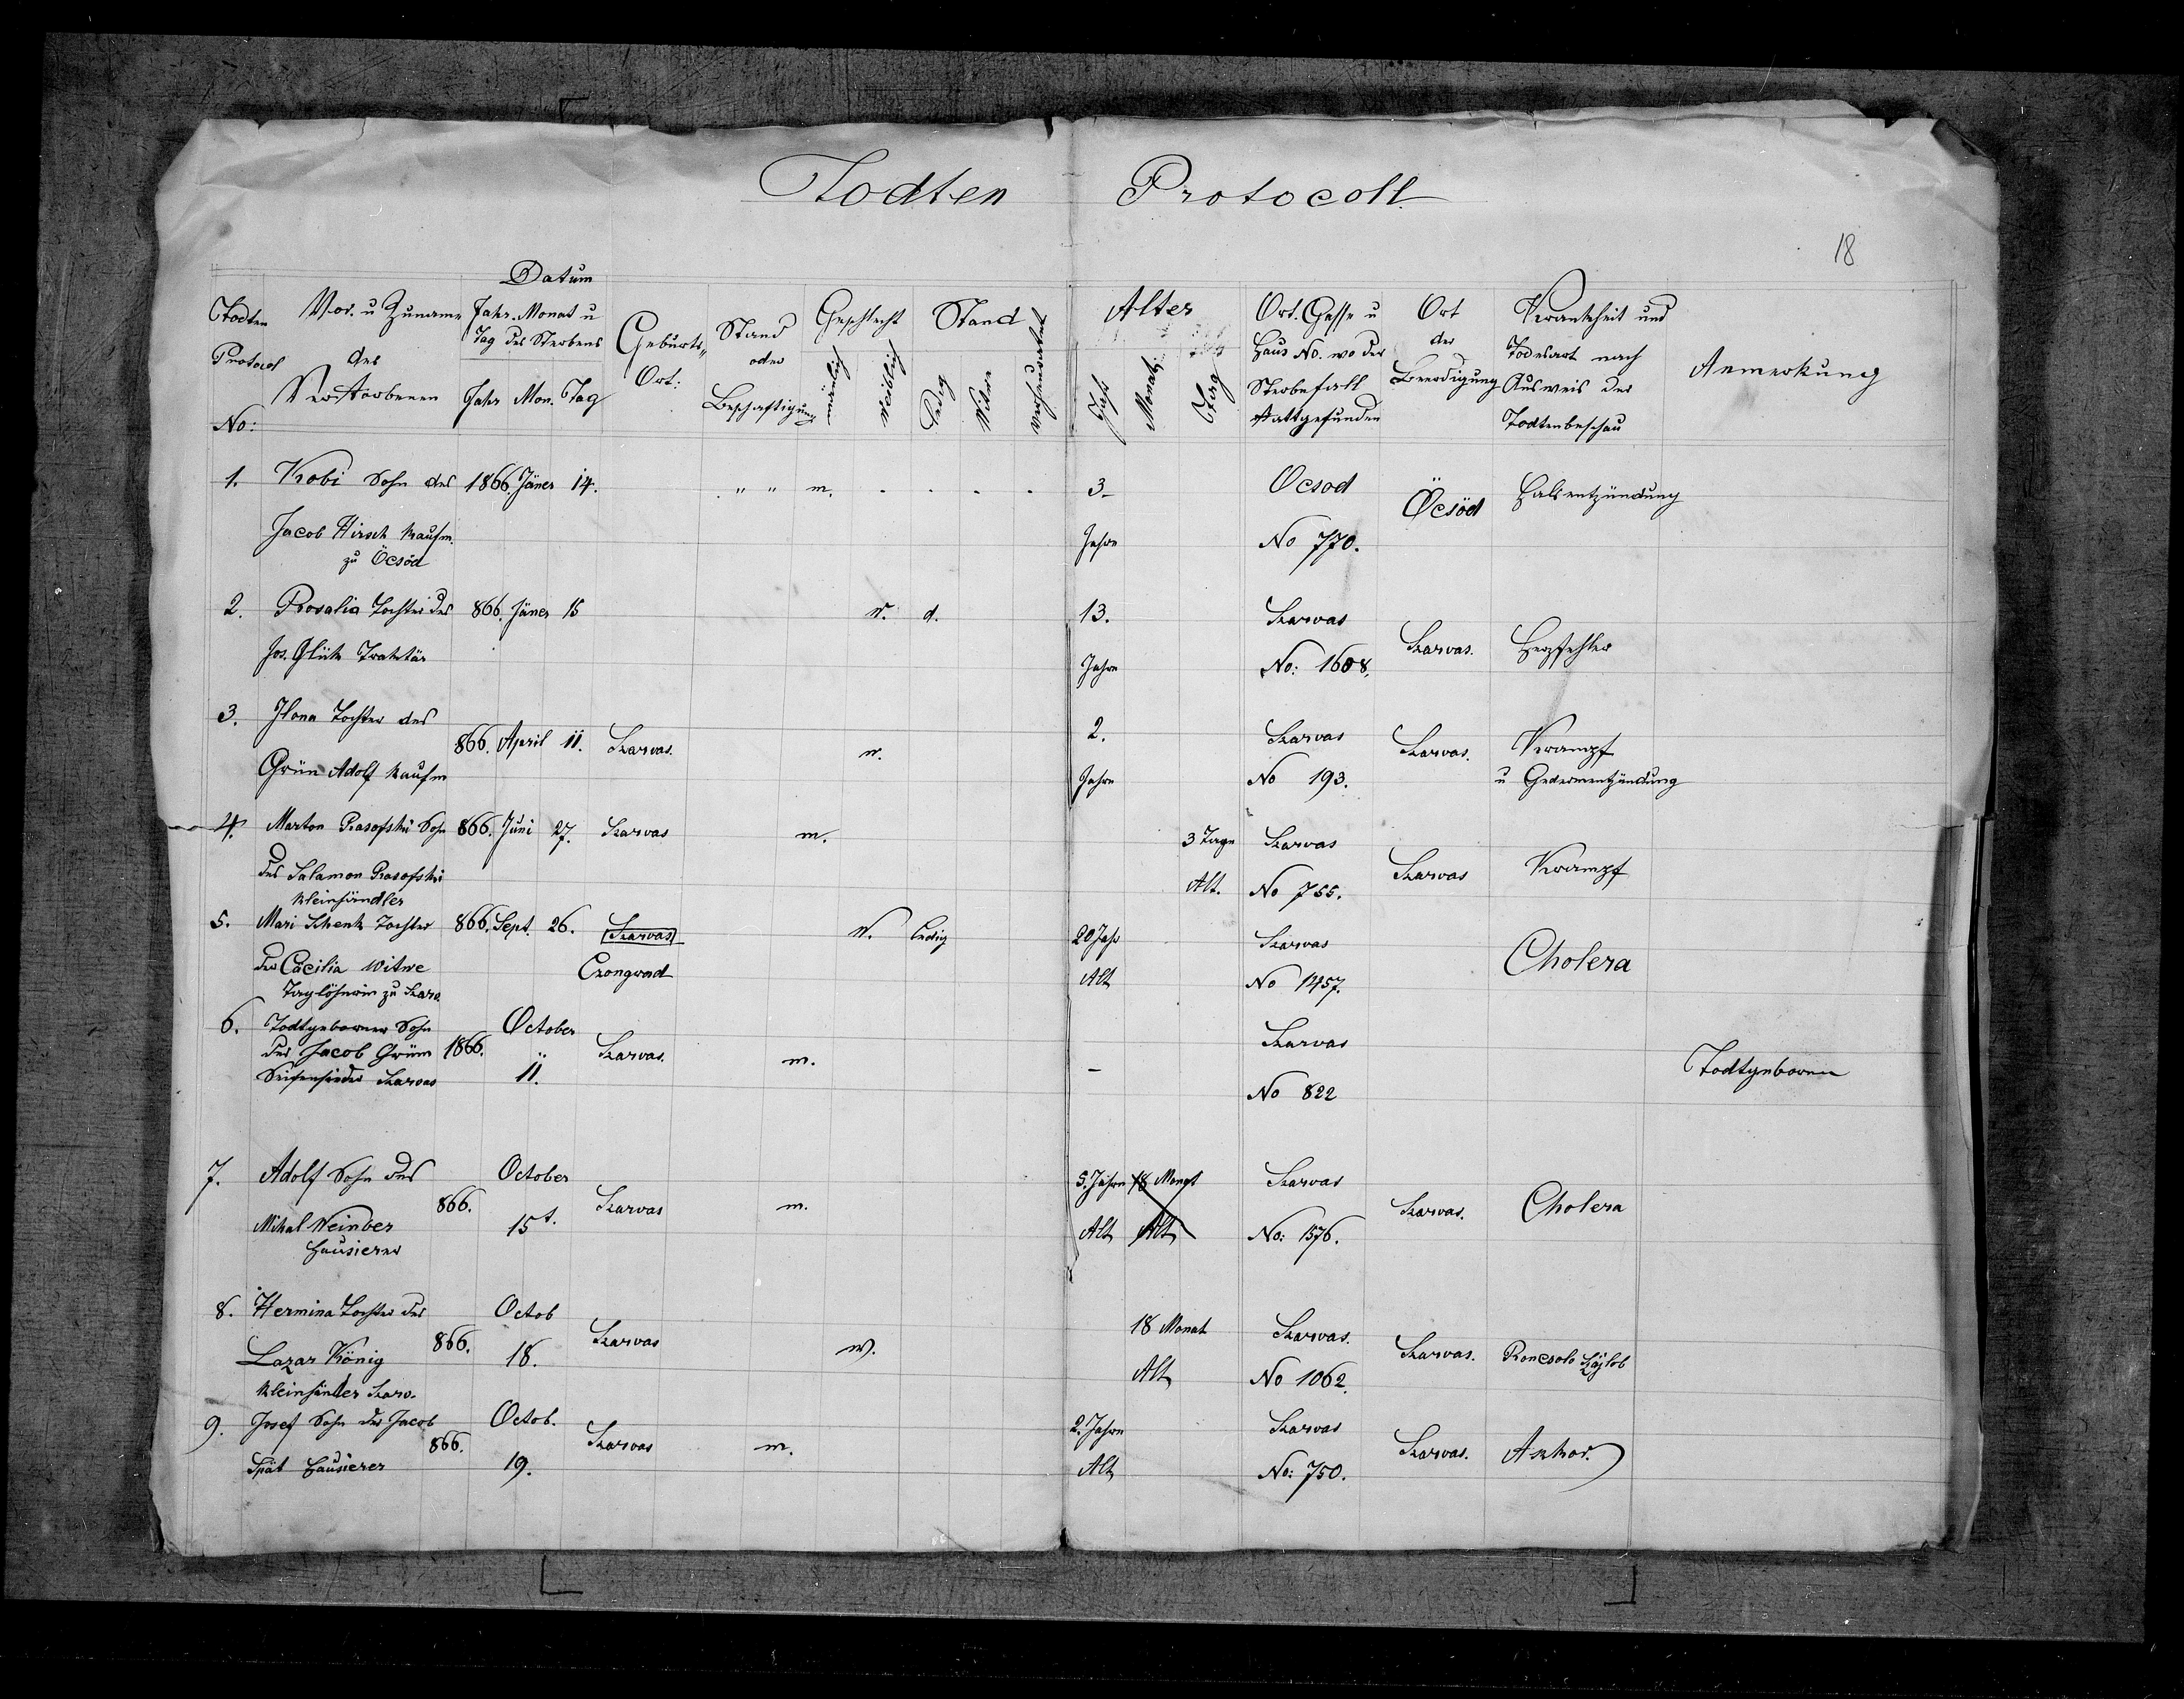 Todten Protocoll
18
Datum
Todten Protocol No:
Vor. u Zuname des Verstorbenen
Jahr. Monat u Tag des Sterbens
Jahr Mon. Tag
Geburts„ Ort:
Stand oder Beschäftigung
Geschlecht
mänlich weiblich
Stand
Ledig Witwe verheuratet
Alter
Jahr Monat Tag
Ort. Gasse u Haus No. wo der Sterbefall stattgefunden
Ort der Beerdigung
Krankheit und Todesart nach Ausweis der Todtenbeschau
Anmerkung
1. Kobi Sohn des 1866. Jäner 14. " " m. 3 Ocsod Öcsöd Halsentzündung
Jacob Hirsch Kaufm. Jahre No 770.
zu Öcsöd
2. Rosalia Tochter des 866. Jäner 15 w. d. 13. Szarvas Szarvas. Herzfehler
Jos. Glük Traktär Jahre No: 1608.
3. Ilona Tochter des 866. April 11. Szarvas. w. 2. Szarvas Szarvas. Krampf
Grün Adolf Kaufm Jahre No 193. u Gedermentzündung
4. Marton Rasofski Sohn 866. Juni 27. Szarvas m. 3 Tage Szarvas Szarvas Krampf
des Salamon Rasofski Alt. No 755.
Kleinhändler
5. Mari Schenk Tochter 866. Sept. 26. Szarvas w. Ledig 20 Jahr Szarvas Cholera
der Cäcilia Witwe Czongrad Alt No 1457.
Taglöhnerin zu Szarv.
6. Todtgeborner Sohn October Szarvas
des Jacob Grün 1866. Szarvas. m. – Todtgeboren
Seifensieder Szarvas 11. No 822
7. Adolf Sohn des October 5. Jahre 18 Monat Szarvas
866. Szarvas m. Szarvas. Cholera
Mihal Weinber 15t. Alt Alt No: 1576.
Hausierer
8. Hermina Tochter des Octob 18 Monat Szarvas.
866. Szarvas w. Szarvas.
Lazar König 18. Alt No 1062. Roncsoló
Kleinhändler Szarv.
9. Josef Sohn des Jacob Octob. 2. Jahre Szarvas
866. Szarvas m. Szarvas.
Spät Hausierer 19. Alt No: 750.